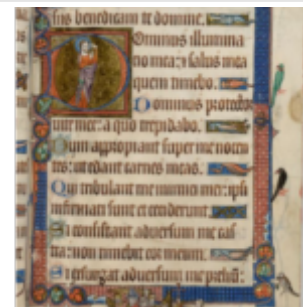 sus benedicam te domine.
Dominus illumina
tio mea: et salus mea
quem timebo.
Dominus protector
vite mee: a quo trepidabo.
Dum appropiant super me nocen
tes: ut edant carnes meas.
Qui tribulant me inimici mei: ipsi
infirmati sunt et ceciderunt.
Si consistant adversum me cas
tra: non timebit cor meum.
Si exsurgat adversum me prelium: